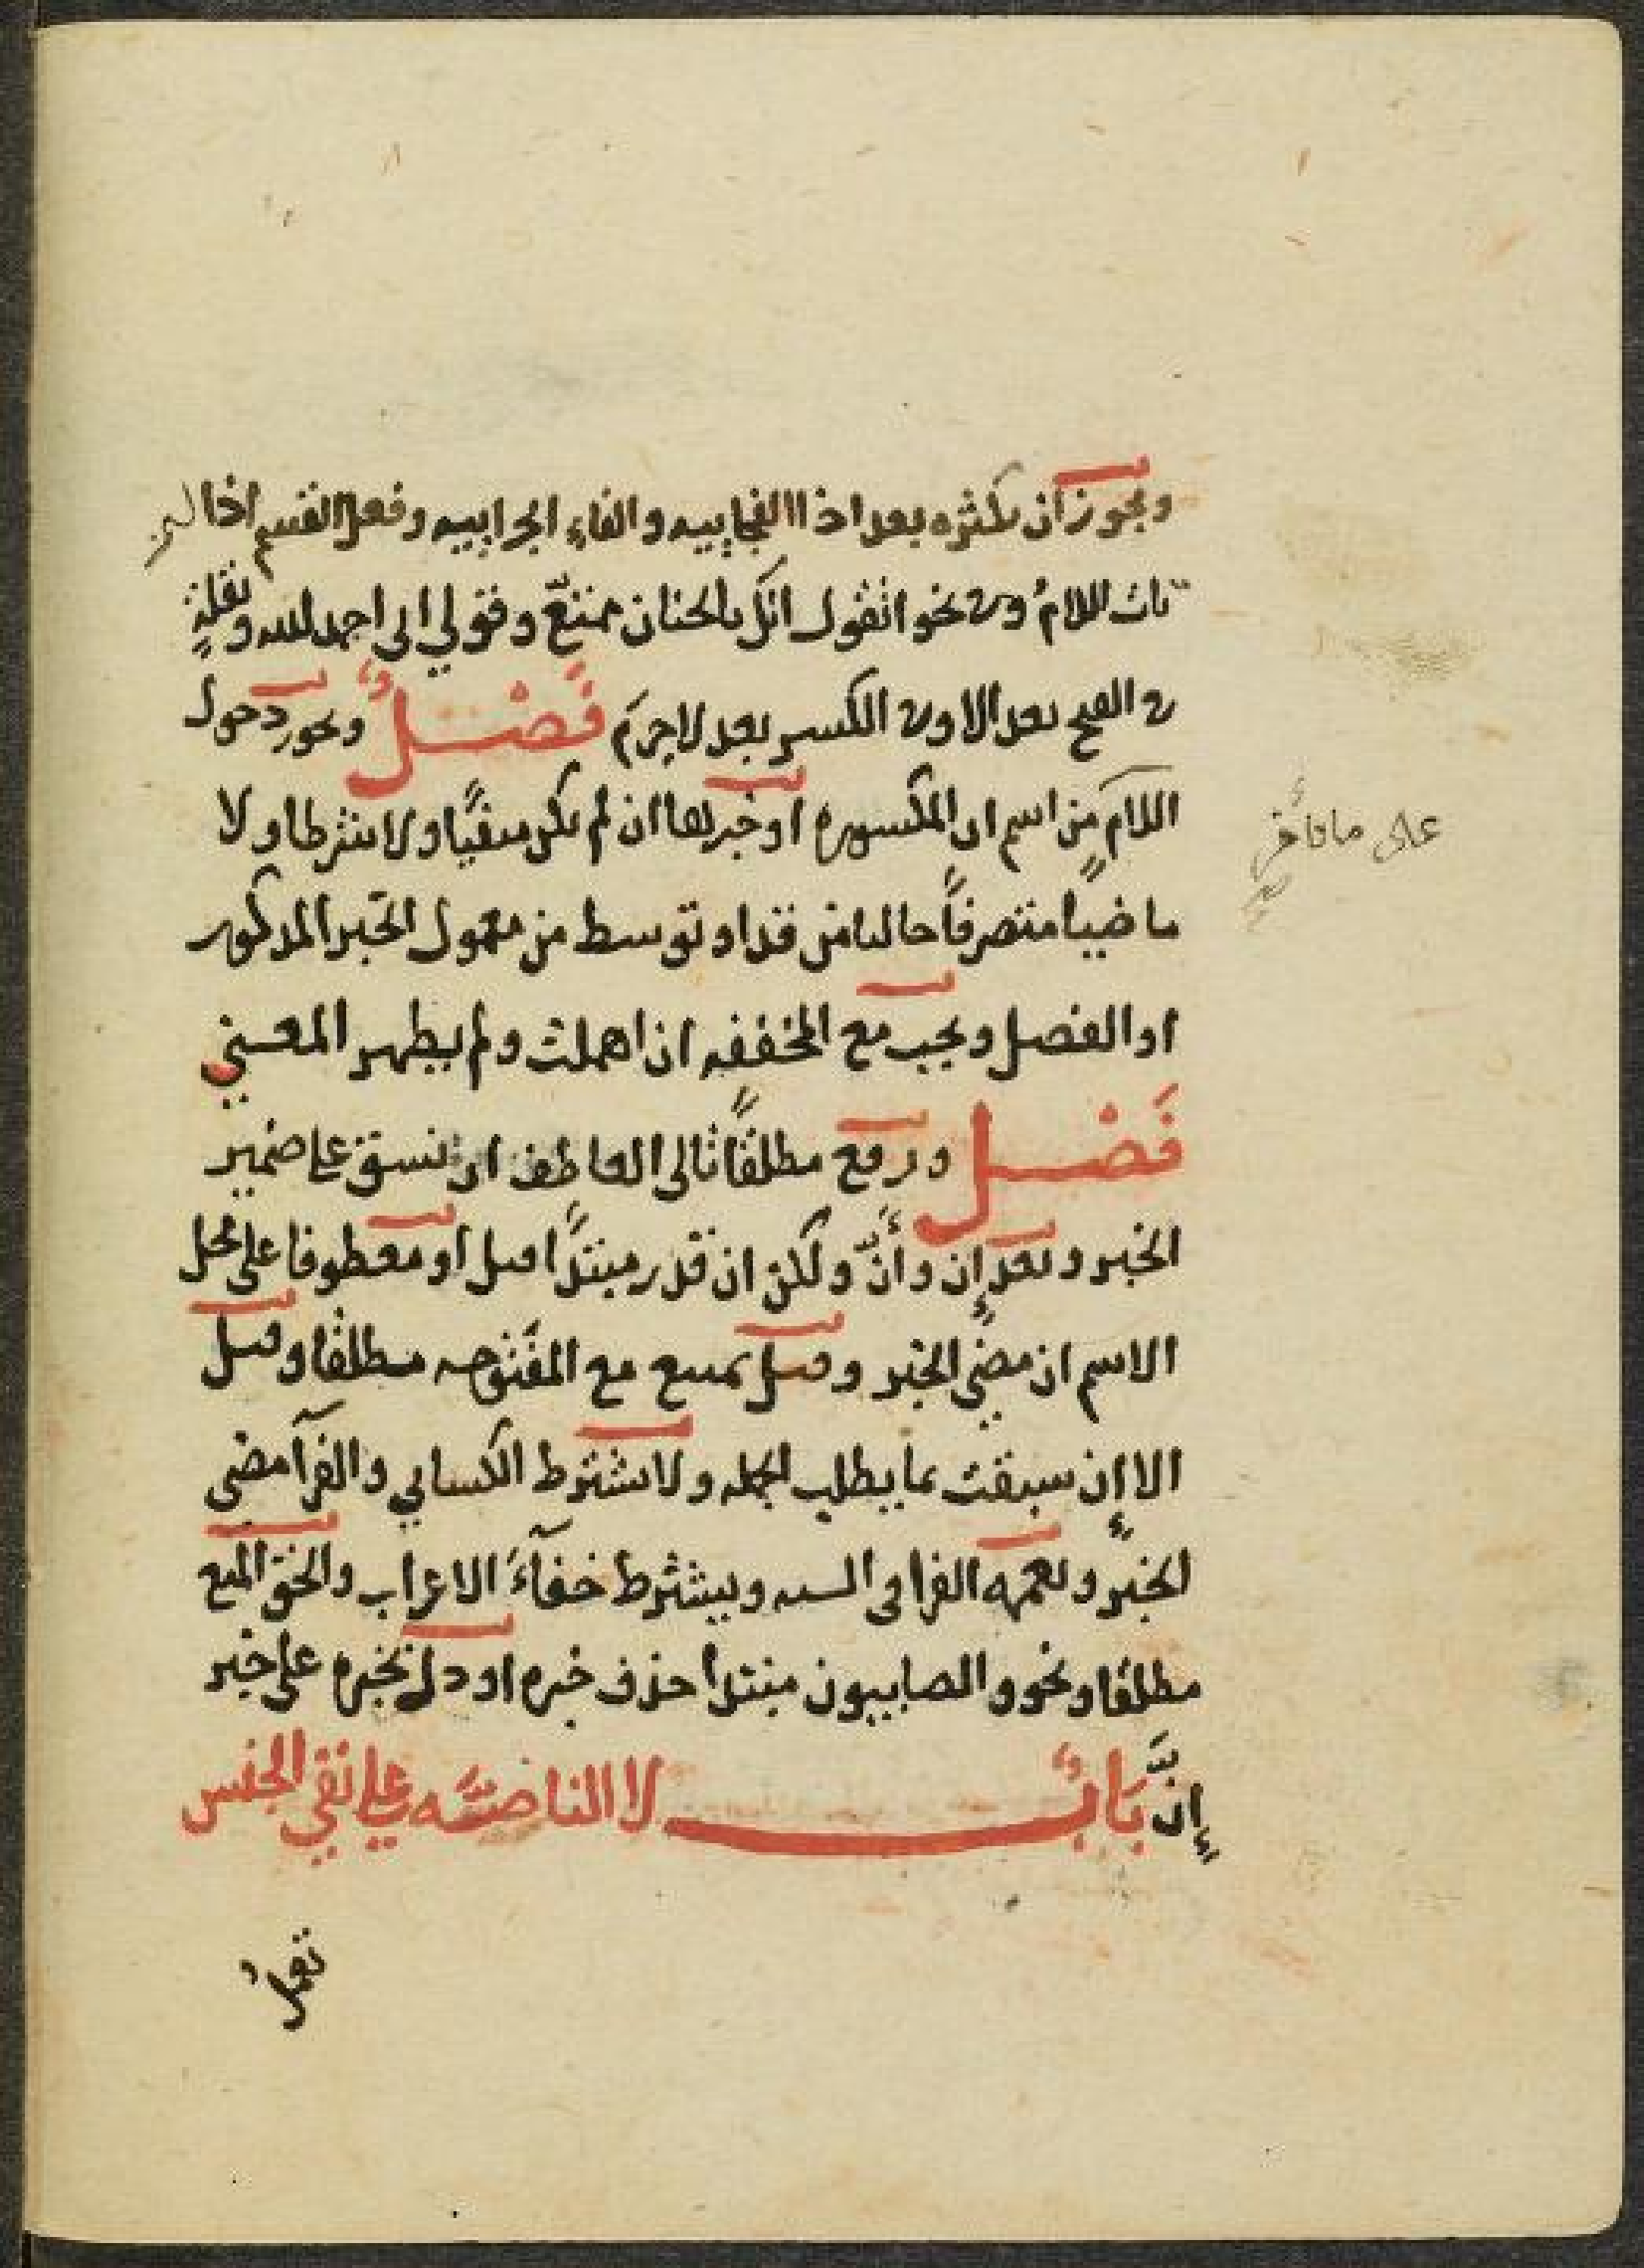 ويجوزان بكثره بعد اذا الفجاييه والفاء الجواييه وفعل القسم اذا لم
تات اللام وفي نحو اتقول انك بالحنان ممتنع وقولي اني احمد لله وبقلة
في الفتح بعد الا وفي الكسر بعد لا جرم فَصْلٌ ويجوز دخول
اللام من اسم ان المكسوره او خبرها ان لم يكن منفيًا ولا شرطا ولا
ماضيا متصرفًا حاليا من قد او توسط من معمول الخبر المذكور
او الفصل ويجب مع المخففه ان اهملت ولم يظهر المعنى
فَصْل ورفع مطلقًا تالي العاطف ان نسق على ضمير
الخبر وبعد إن وأنّ ولكن ان قدر مبتدًا قيل او معطوفا على محل
الاسم ان مضى الخبر وقيل يمتنع مع المفتوحه مطلقا وقيل
الا إن سبقت بما يطلب الجمله ولا يشترط الكسايي والفرآ مضى
الخبر ويعمه الفرا في السته ويشترط خفآءَ الاعراب والحق المنع
مطلقا ونحو والصابيون مبتدأ حذف خبره او دل بخبره على خبر
إنّ بَابٌ لا الناصبَه على نفي الجنس
تعمل
على ماتأخر